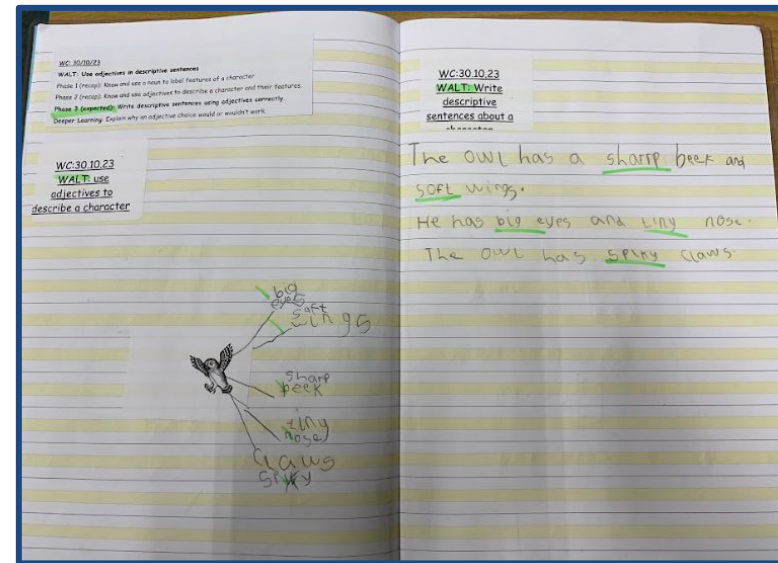 WC: 30/10/23
WALT: Use adjectives in descriptive sentences
Phase 1 (recap): Know and use a noun to label features of a character
Phase 2 (recap): Know and use adjectives to describe a character and their features.
Phase 3 (expected): Write descriptive sentences using adjectives correctly.
Deeper Learning: Explain why an adjective choice would or wouldn't work.
WC:30.10.23
WALT: use
adjectives to
describe a character
big
eyes
soft
wings
sharp
beek
tiny
nose
claws
spiky
WC:30.10.23
WALT: Write
descriptive
sentences about a
The owl has a sharp beek and
soft wings.
He has big eyes and tiny nose.
The owl has spiky claws.